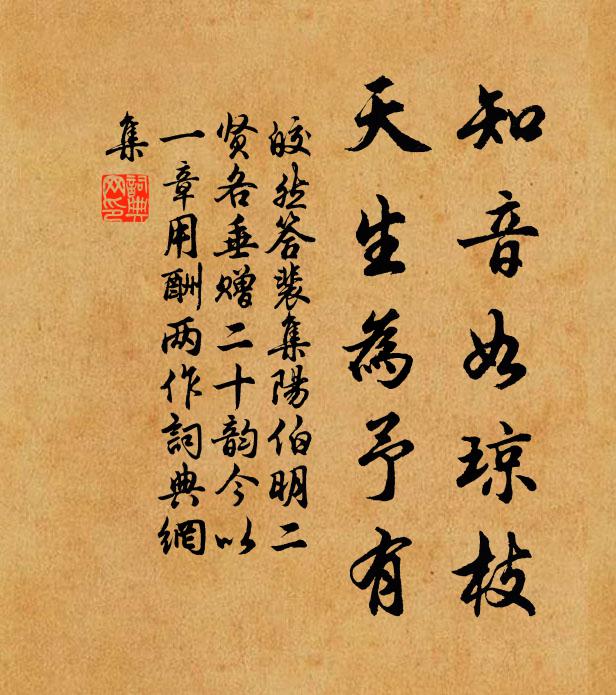 知音如琼枝
天生為予有
皎然答裴集陽伯明二
贤各垂赠二十韵今以
一章用酬两作詞典網
集
詞典
网印